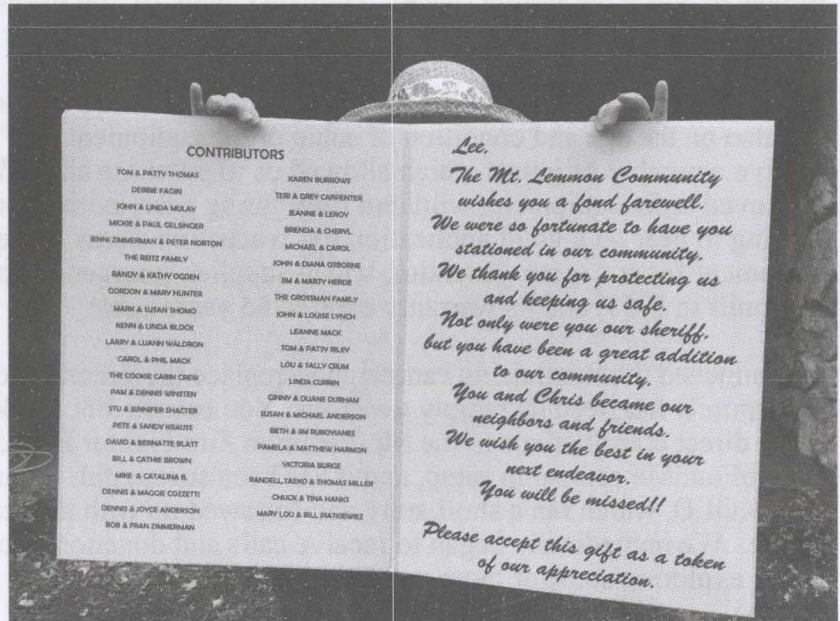 CONTRIBUTORS
TOM & PATTY THOMAS
DEBBIE FAGIN
JOHN & LINDA MULAY
MICKIE & PAUL GELSINGER
JENNI ZIMMERMAN & PETER NORTON
THE REITZ FAMILY
RANDY & KATHY OGDEN
GORDON & MARY HUNTER
MARK & SUSAN THOMO
KENN & LINDA BLOCK
LARRY & LUANN WALDRON
CAROL & PHIL MACK
THE COOKIE CABIN CREW
PAM & DENNIS WINSTEN
STU & JENNIFER SHACTER
PETE & SANDY KRAUSS
DAVID & BERNATTE BLATT
BILL & CATHIE BROWN
MIKE & CATALINA B.
DENNIS & MAGGIE COZZETTI
DENNIS & JOYCE ANDERSON
BOB & FRAN ZIMMERMAN
KAREN BURROWS
TERI & GREY CARPENTER
JEANNE & LEROY
BRENDA & CHERYL
MICHAEL & CAROL
JOHN & DIANA OSBORNE
JIM & MARTY HERDE
THE GROSSMAN FAMILY
JOHN & LOUISE LYNCH
LEANNE MACK
TOM & PATSY RILEY
LOU & SALLY CRUM
LINDA CURRIN
GINNY & DUANE DURHAM
SUSAN & MICHAEL ANDERSON
BETH & JIM RUBOVIANES
PAMELA & MATTHEW HARMON
VICTORIA BURGE
RANDELL,TAEKO & THOMAS MILLER
CHUCK & TINA HANKS
MARY LOU & BILL PIATKIEWIEZ
Lee,
The Mt. Lemmon Community
wishes you a fond farewell.
We were so fortunate to have you
stationed in our community.
We thank you for protecting us
and keeping us safe.
Not only were you our sheriff,
but you have been a great addition
to our community.
You and Chris became our
neighbors and friends.
We wish you the best in your
next endeavor.
You will be missed!!
Please accept this gift as a token
of our appreciation.